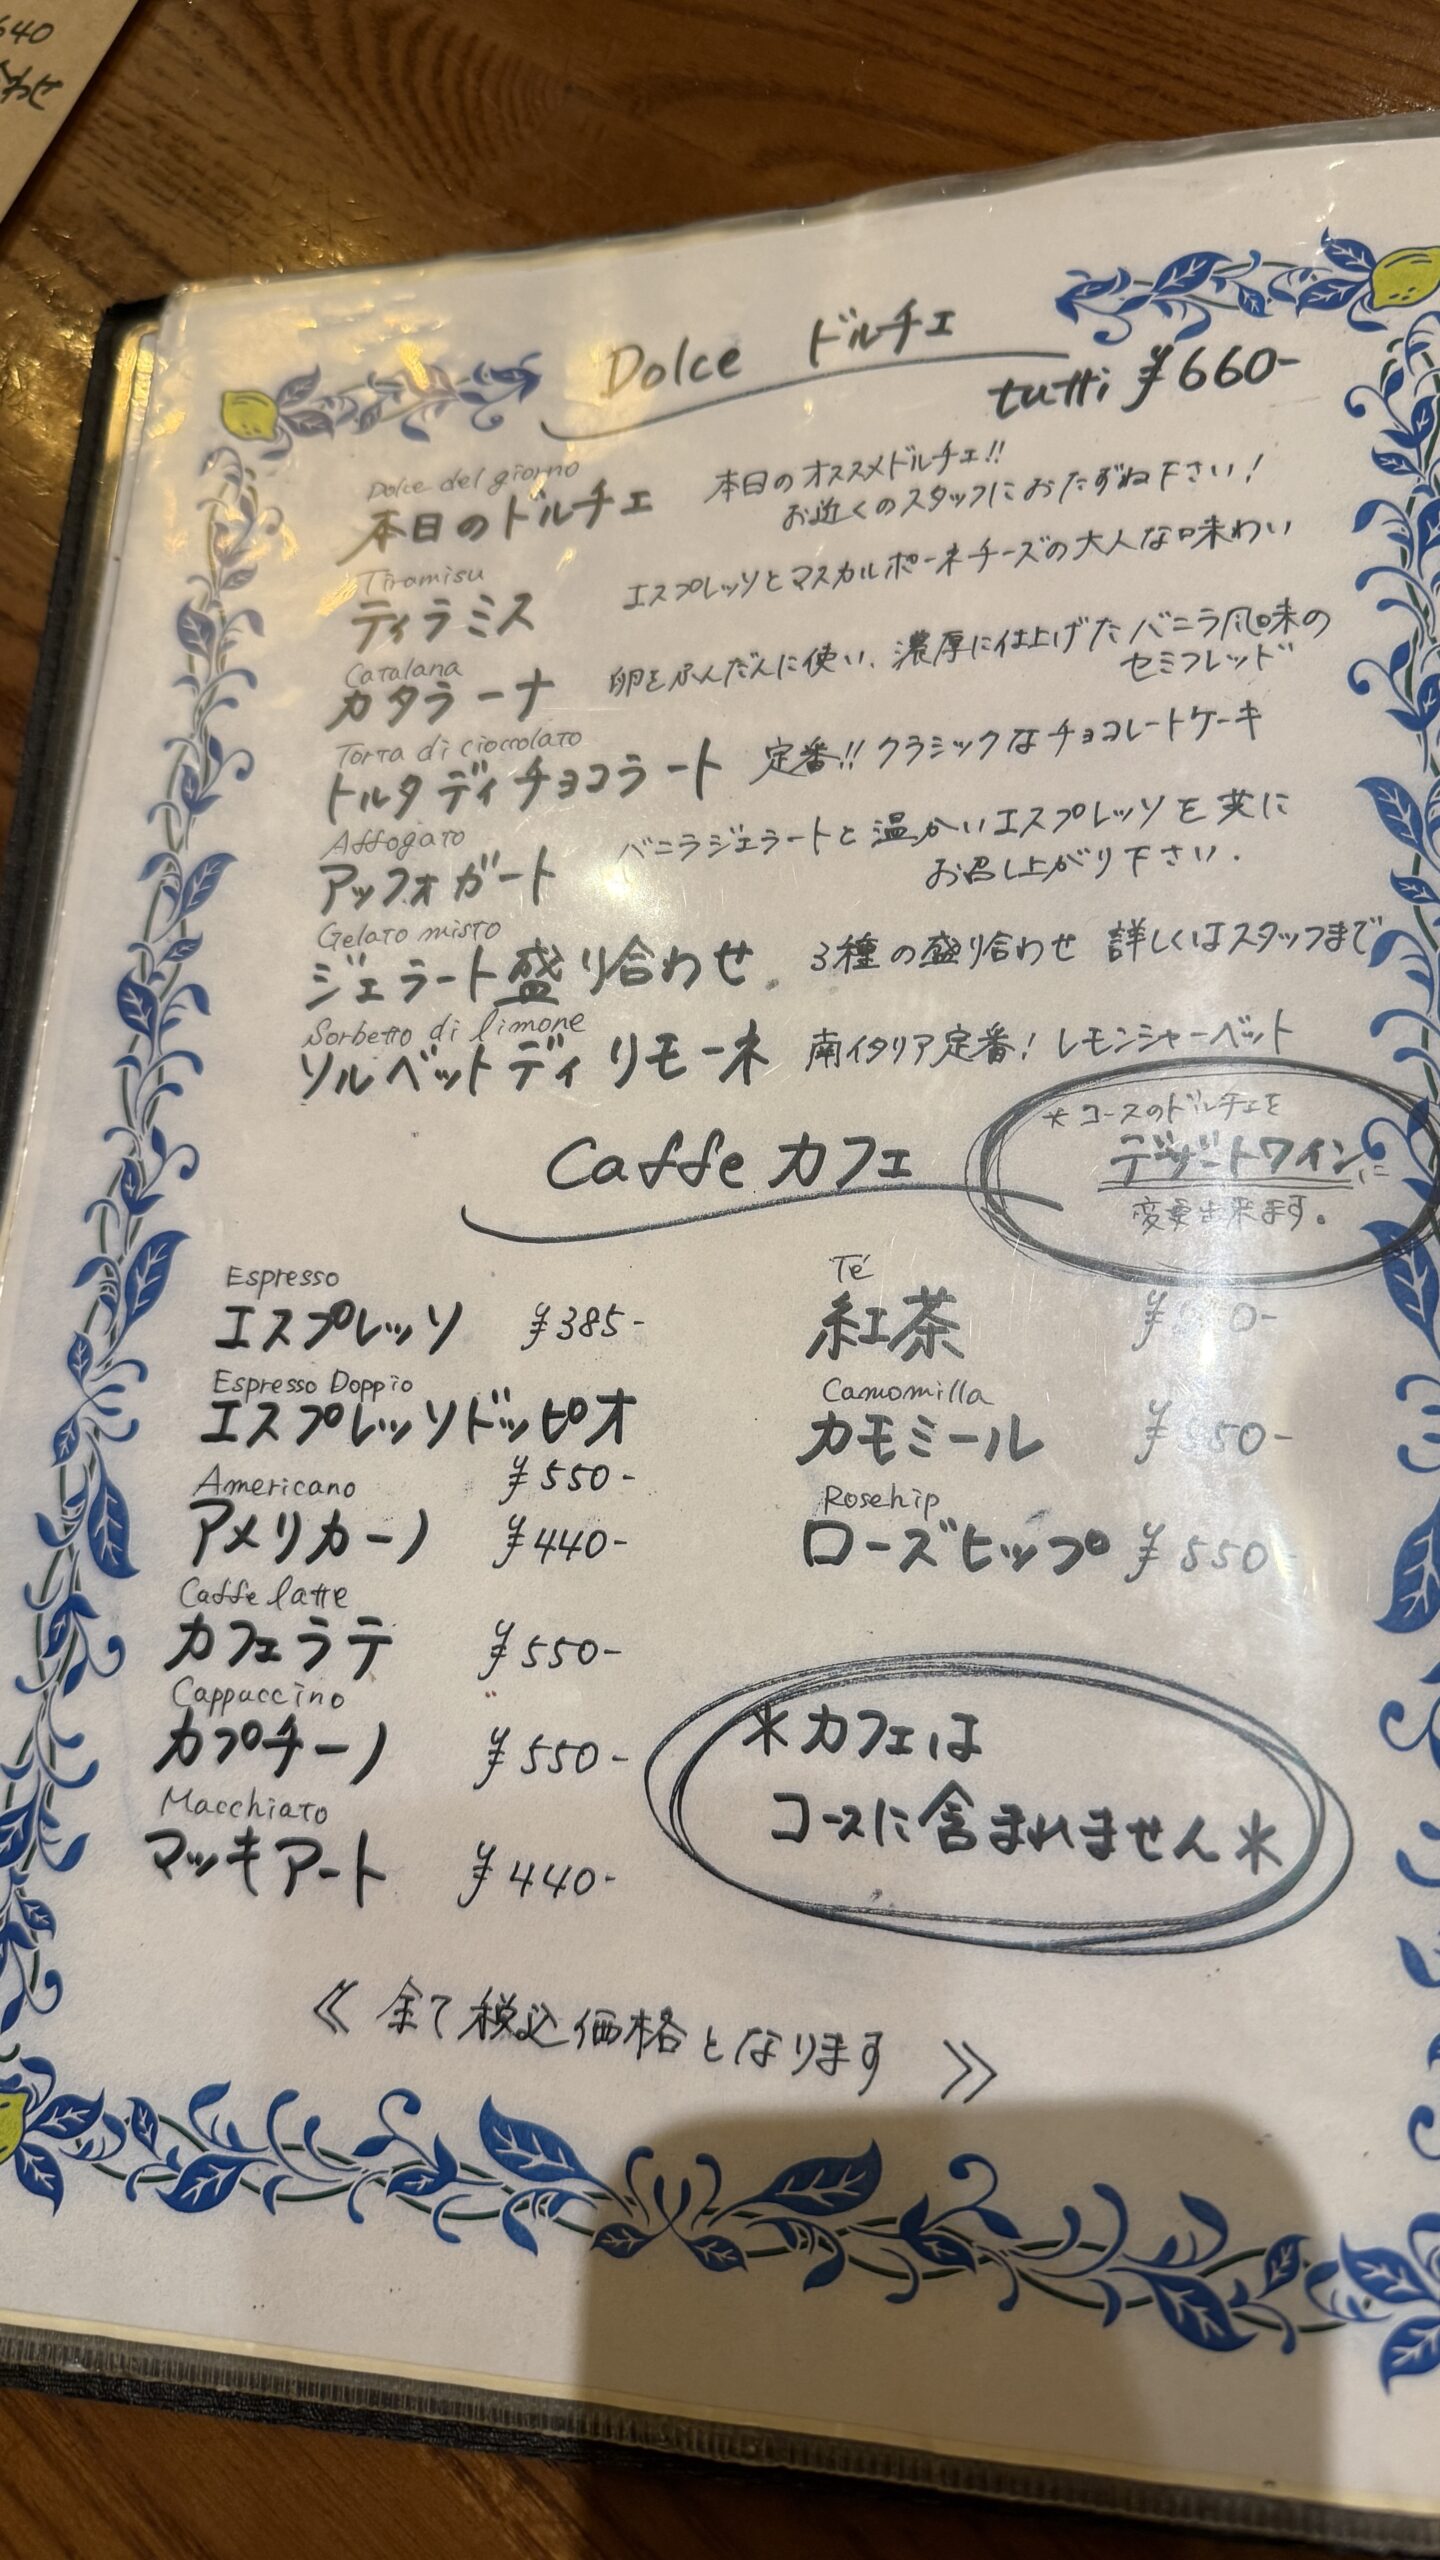 640
わせ
Dolce ドルチェ
tutti ¥660-
Dolce del giorno
本日のドルチェ 本日のオススメドルチェ!!
お近くのスタッフにおたずね下さい!
Tiramisu
ティラミス エスプレッソとマスカルポーネチーズの大人な味わい
Catalana
カタラーナ 卵をふんだんに使い、濃厚に仕上げたバニラ風味の
セミフレッド
Torta di cioccolato
トルタ ディ チョコラート 定番!! クラシックなチョコレートケーキ
Affogato
アッフォガート バニラジェラートと温かいエスプレッソを共に
お召し上がり下さい.
Gelato misto
ジェラート盛り合わせ 3種の盛り合わせ 詳しくはスタッフまで
Sorbetto di limone
ソルベット ディ リモーネ 南イタリア定番! レモンシャーベット
*コースのドルチェを
デザートワインに
変更出来ます。
Caffe カフェ
Espresso
エスプレッソ ¥385-
Espresso Doppio
エスプレッソドッピオ
¥550-
Americano
アメリカーノ ¥440-
Caffe latte
カフェラテ ¥550-
Cappuccino
カプチーノ ¥550-
Macchiato
マッキアート ¥440-
Té
紅茶
Camomilla
カモミール ¥550-
Rosehip
ローズヒップ ¥550-
*カフェは
コースに含まれません*
《 全て税込価格となります 》